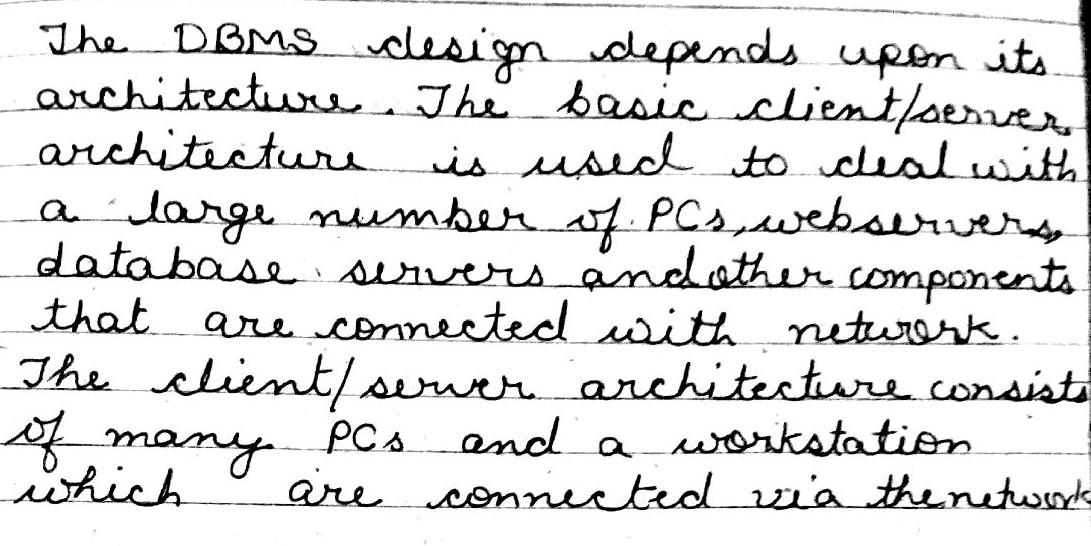 The DBMS design depends upon its
architecture. The basic client/server
architecture is used to deal with
a large number of PCs, webservers,
database servers and other components
that are connected with network.
The client/server architecture consists
of many PCs and a workstation
which are connected via the network